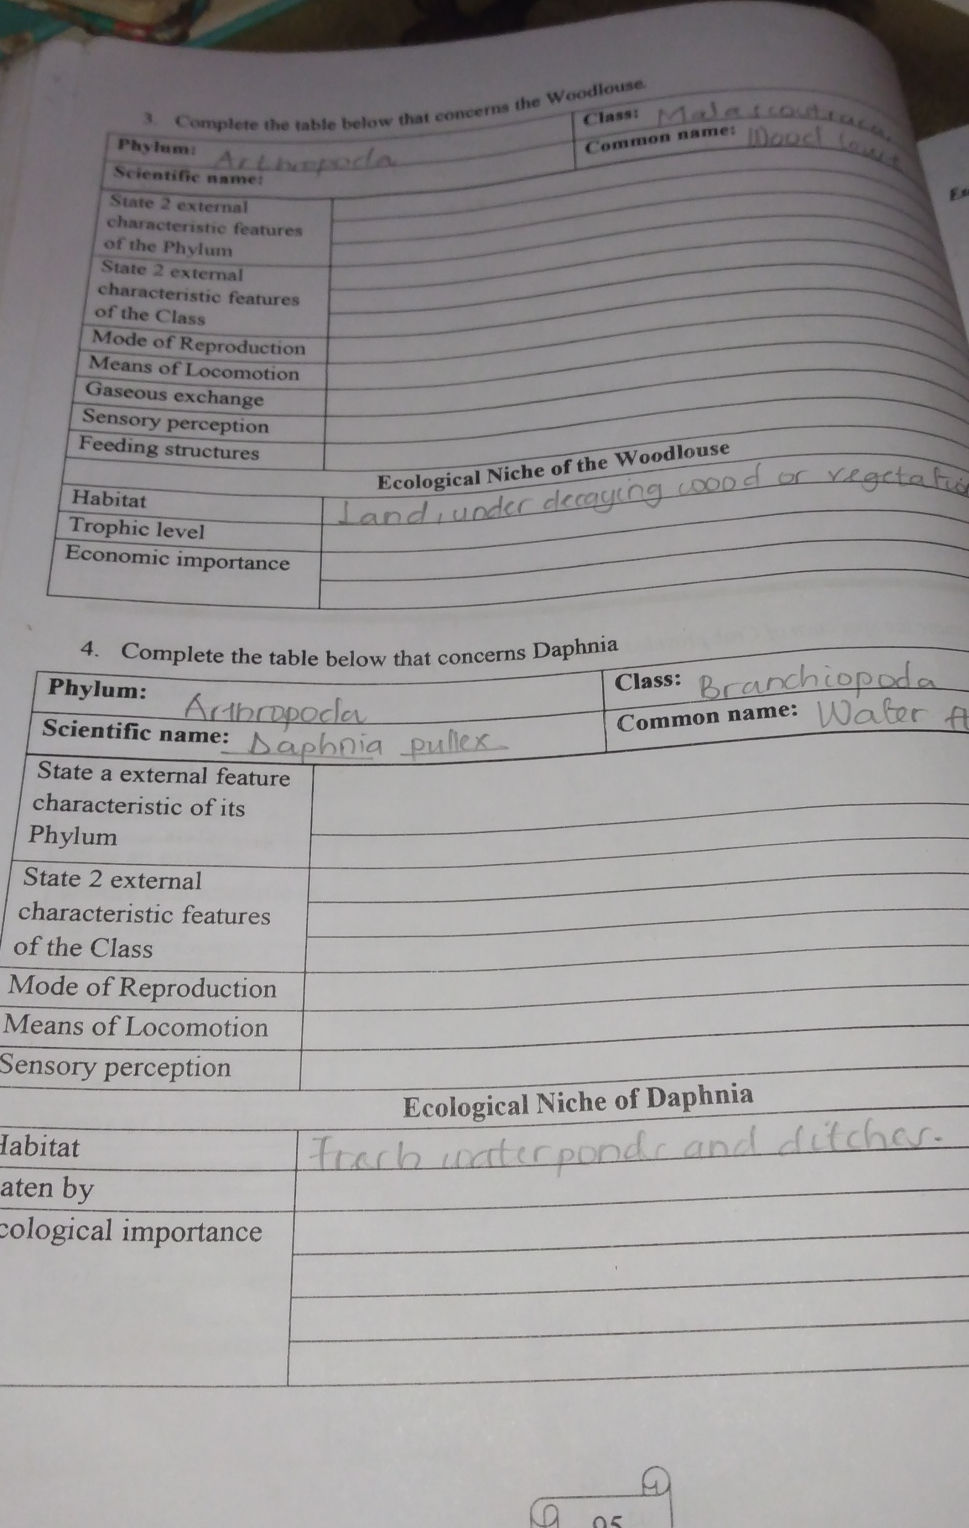 3. Complete the table below that concerns the Woodlouse.
Phylum: Arthropoda
Class: Malascoutraca
Scientific name:
Common name: Wood louse
State 2 external
characteristic features
of the Phylum
State 2 external
characteristic features
of the Class
Mode of Reproduction
Means of Locomotion
Gaseous exchange
Sensory perception
Feeding structures
Ecological Niche of the Woodlouse
Habitat Land, under decaying wood or vegetation
Trophic level
Economic importance
4. Complete the table below that concerns Daphnia
Phylum: Arthropoda
Class: Branchiopoda
Scientific name: Daphnia pullex
Common name: Water fl
State a external feature
characteristic of its
Phylum
State 2 external
characteristic features
of the Class
Mode of Reproduction
Means of Locomotion
Sensory perception
Ecological Niche of Daphnia
Habitat Fresh water ponds and ditches.
aten by
cological importance
95